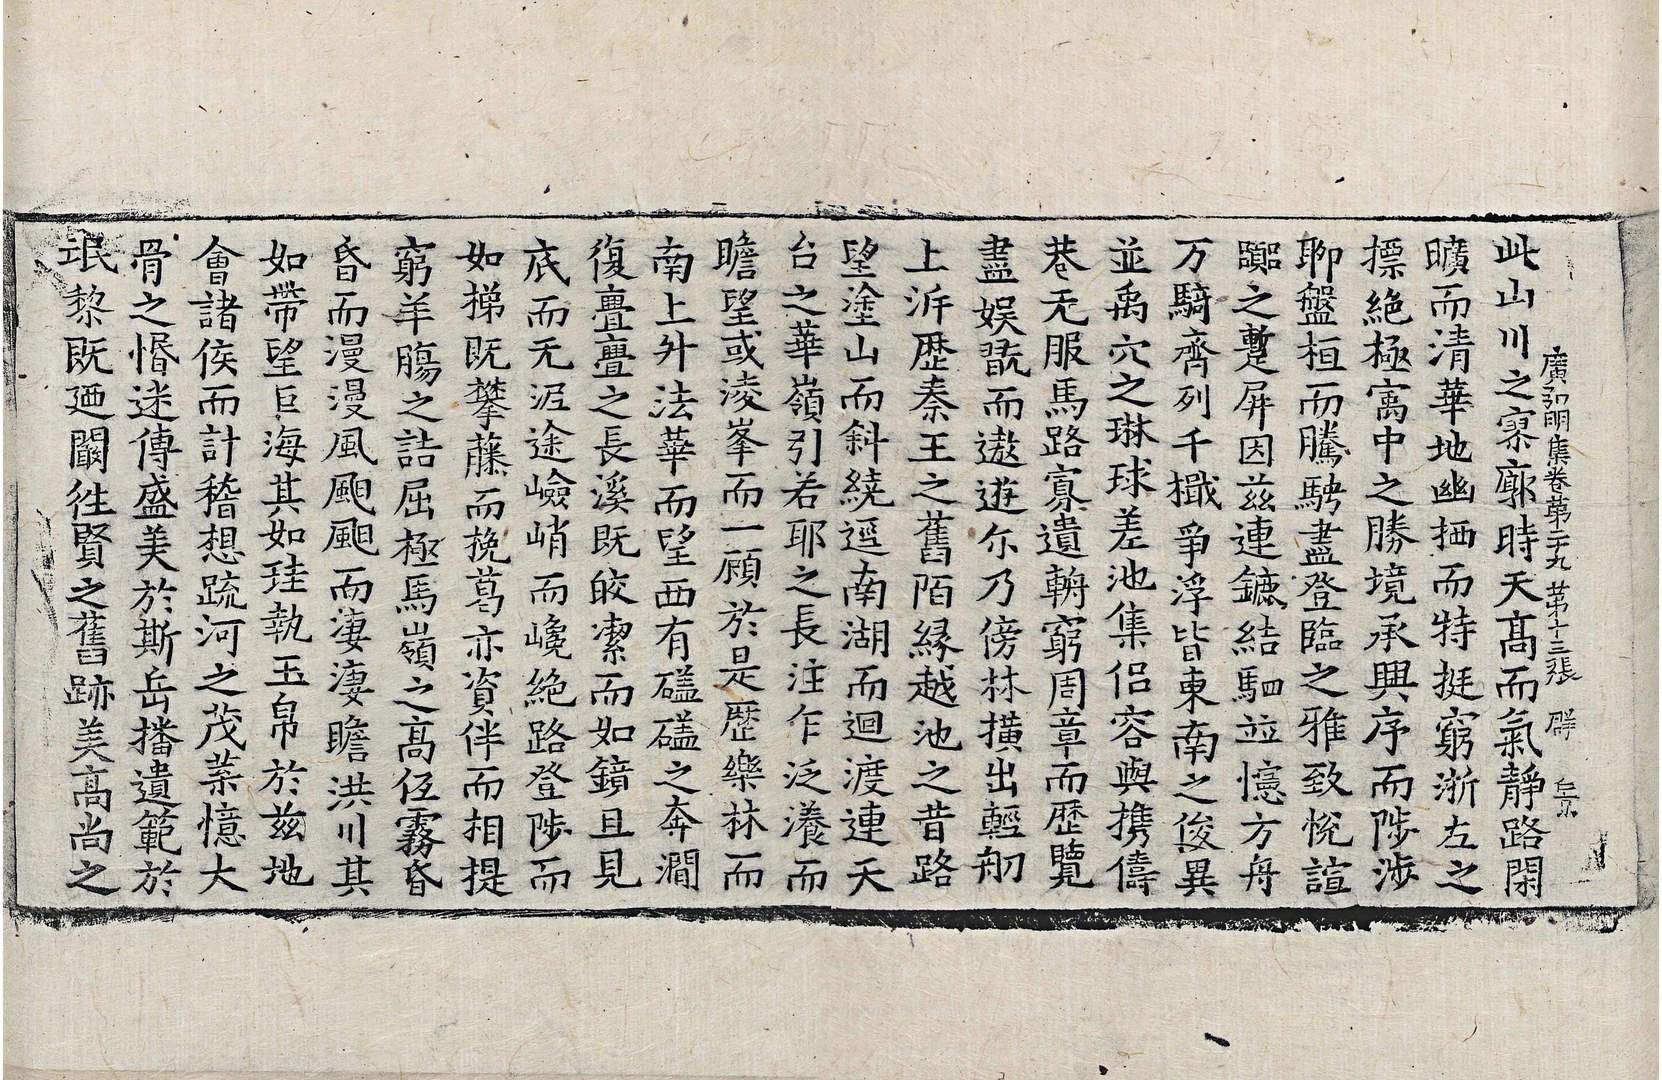 廣弘明集卷第二十九 第十三張 群
此山川之寥廓時天髙而氣靜路閑
曠而清華地幽栖而特挺窮浙左之
摽絶極㝢中之勝境承興序而陟涉
聊盤桓而騰騁盡登臨之雅致恱諠
踘之蹔屏因茲連鑣結駟並憶方舟
万騎齊列千檝爭浮皆東南之俊異
並禹穴之琳球差池集侣容與携儔
巷无服馬路寡遺輈窮周章而歷覽
盡娱翫而遨遊尒乃傍林撗出輕舠
上泝歷秦王之舊陌縁越池之昔路
望塗山而斜繞逕南湖而迴渡連天
台之華嶺引若耶之長注乍泛瀁而
瞻望或淩峯而一顧於是歷樂林而
南上升法華而望西有礚礚之奔澗
復亹亹之長溪既皎㓗而如鏡且見
底而无泥途嶮峭而巉絶路登陟而
如梯既攀藤而挽葛亦資伴而相提
窮羊膓之詰屈極馬嶺之髙伍霧昏
昏而漫漫風颮颮而淒淒瞻洪川其
如帶望巨海其如珪執玉帛於茲地
會諸侯而計稽想疏河之茂菜憶大
骨之惛迷傳盛美於斯岳播遺範於
氓黎既廼闞徃賢之舊跡美髙尚之